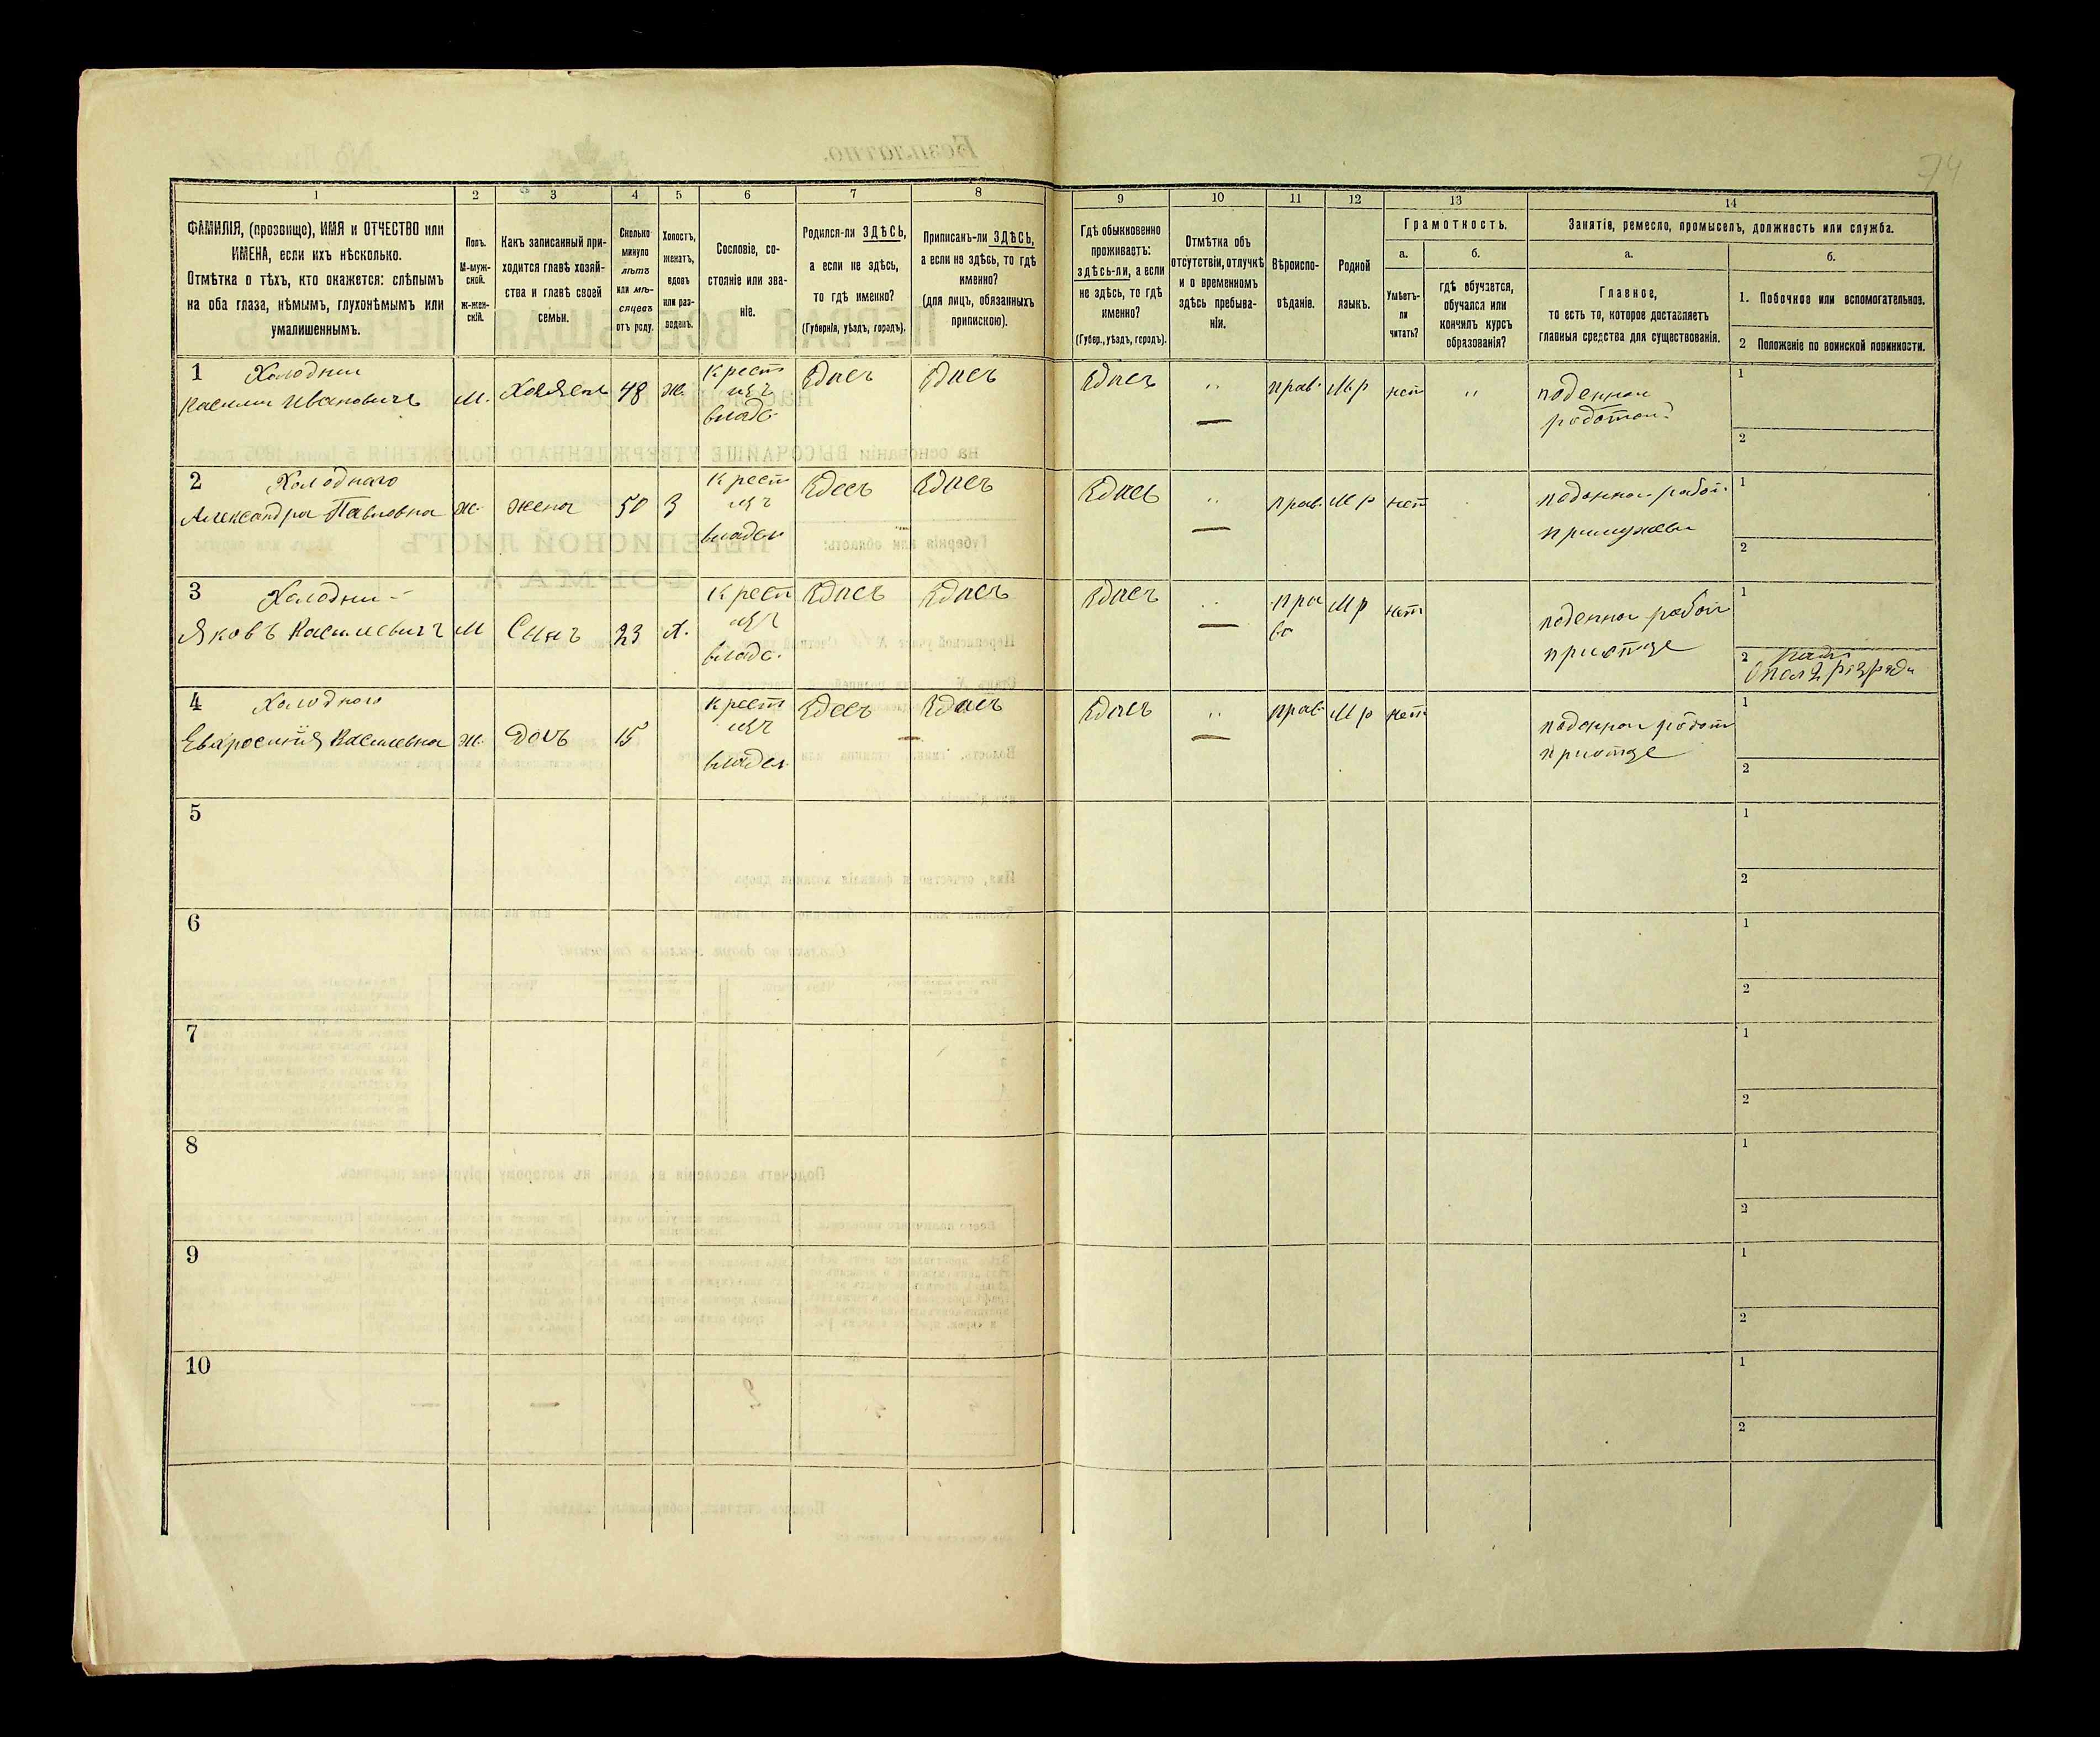 74
1
2
3
4
5
6
7
8
9
10
11
12
13
14
ФАМИЛІЯ, (прозвище), ИМЯ и ОТЧЕСТВО или
ИМЕНА, если ихъ нѣсколько.
Отмѣтка о тѣхъ, кто окажется: слѣпымъ
на оба глаза, нѣмымъ, глухонѣмымъ или
умалишеннымъ.
Полъ.
М-муж-
ской.
ж-жен-
скій.
Какъ записанный при-
ходится главѣ хозяй-
ства и главѣ своей
семьи.
Сколько
минуло
лѣтъ
или мѣ-
сяцевъ
отъ роду.
Холостъ,
женатъ,
вдовъ
или раз-
веденъ.
Сословіе, со-
стояніе или зва-
ніе.
Родился-ли ЗДѢСЬ,
а если не здѣсь,
то гдѣ именно?
(Губернія, уѣздъ, городъ).
Приписанъ-ли ЗДѢСЬ,
а если не здѣсь, то гдѣ
именно?
(для лицъ, обязанныхъ
припискою).
Гдѣ обыкновенно
проживаетъ:
здѣсь-ли, а если
не здѣсь, то гдѣ
именно?
(Губер., уѣздъ, городъ).
Отмѣтка объ
отсутствіи, отлучкѣ
и о временномъ
здѣсь пребыва-
ніи.
Вѣроиспо-
вѣданіе.
Родной
языкъ.
Грамотность.
а.
Умѣетъ-
ли
читать?
б.
гдѣ обучается,
обучался или
кончилъ курсъ
образованія?
Занятія, ремесло, промыселъ, должность или служба.
а.
Главное,
то есть то, которое доставляетъ
главныя средства для существованія.
б.
1. Побочное или вспомогательное.
2 Положеніе по воинской повинности.
1 Холодный
Василий Ивановичъ
М.
Хозяен
48
Ж.
Крест
изъ
владе.
Здесь
Здесь
Здесь
"
прав.
Мр
нет
"
поденная
работа
1
2
2 Холоднаго
Александра Павловна
ж.
жена
50
З
Крест
изъ
владел
Здесь
Здесь
Здесь
"
прав.
Мр
нет
поденная работ.
при мужеви
1
2
3 Холодный
Яковъ Василевичъ
М
Сынъ
23
Х.
Крест
изъ
владе.
Здесь
Здесь
Здесь
"
пра
во
Мр
нет
поденная работ
при отце
1
2
4 Холодного
Евхросиния Василевна
ж.
Дочь
15
Крест
изъ
владел
Здесь
Здесь
Здесь
"
прав.
Мр
нет
поденная работ
при отце
1
2
5
1
2
6
1
2
7
1
2
8
1
2
9
1
2
10
1
2